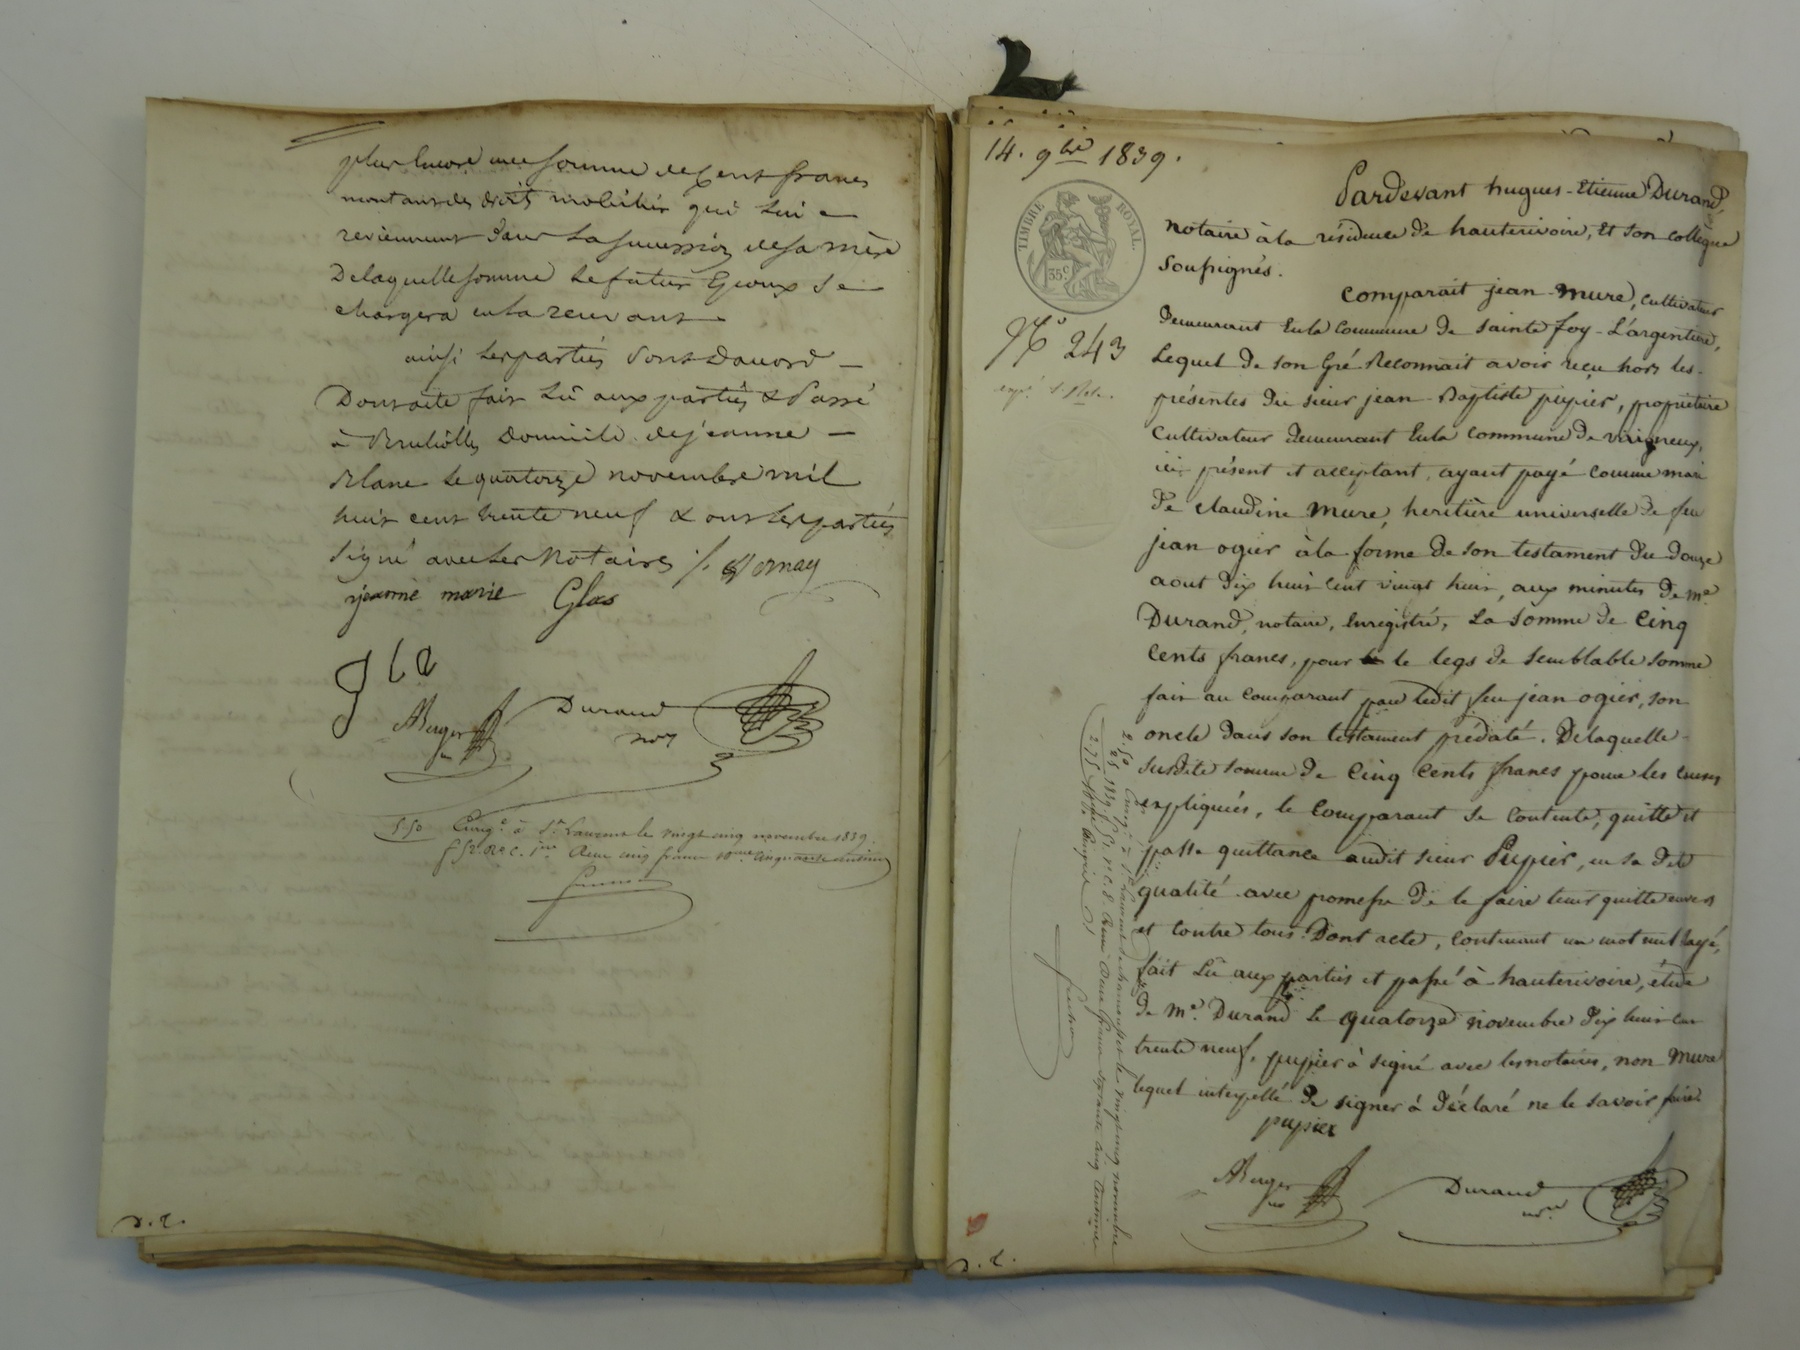 plus encore une somme de Cent francs
montant des droits mobiliers qui lui
reviennent dans la succession de sa mère
De laquelle somme le futur Epoux se
chargera en la recevant
ainsi les parties sont d'accord
Dont acte fait Lû aux parties & Passé
à Brullioles domicile de jeanne
Blanc le quatorze novembre mil
huit cent trente neuf & ont les parties
signé avec les Notaires
jeanne marie Glas
ABerger
Durand
nore
5 50 Enregé à St Laurent le vingt cinq novembre 1839.
Reçu cinq francs 10me Cinquante centimes
D. L.
14. 9bre 1839.
TIMBRE ROYAL.
35c.
No 243
Pardevant hugues-Etienne Durand,
notaire à la résidence de hauterivoire, et son collègue
soussignés.
Comparait jean Mure, cultivateur
demeurant en la commune de sainte foy-L'argentière,
Lequel de son Gré Reconnait avoir reçu hors les
présentes du sieur jean-Baptiste pupier, propriétaire
cultivateur demeurant en la commune de virigneux,
ici présent et acceptant, ayant payé comme mari
de claudine Mure, heritière universelle de feu
jean ogier à la forme de son testament du douze
aout dix huit cent vingt huit, aux minutes de me
Durand, notaire, enregistré, La somme de Cinq
Cents francs, pour le legs de semblable somme
fait au comparant par ledit feu jean ogier, son
oncle dans son testament prédaté. De laquelle
susdite somme de Cinq Cents francs pour les causes
expliquées, le Comparant se Contente, quitte et
passe quittance audit sieur Pupier, en sa dite
qualité avec promesse de le faire tenir quitte envers
et contre tous. Dont acte, contenant un mot nul rayé,
fait Lû aux parties et passé à hauterivoire, étude
de Me. Durand Le quatorze novembre dix huit cent
trente neuf, pupier à signé avec les notaires, non Mure
lequel interpellé de signer à déclaré ne le savoir faire
pupier
ABerger
Durand
nore
2. 50 Enregé à St Laurent de chamousset le vingt cinq novembre
25 1839 Reçu deux francs soixante cinq centimes
2 75
D. L.